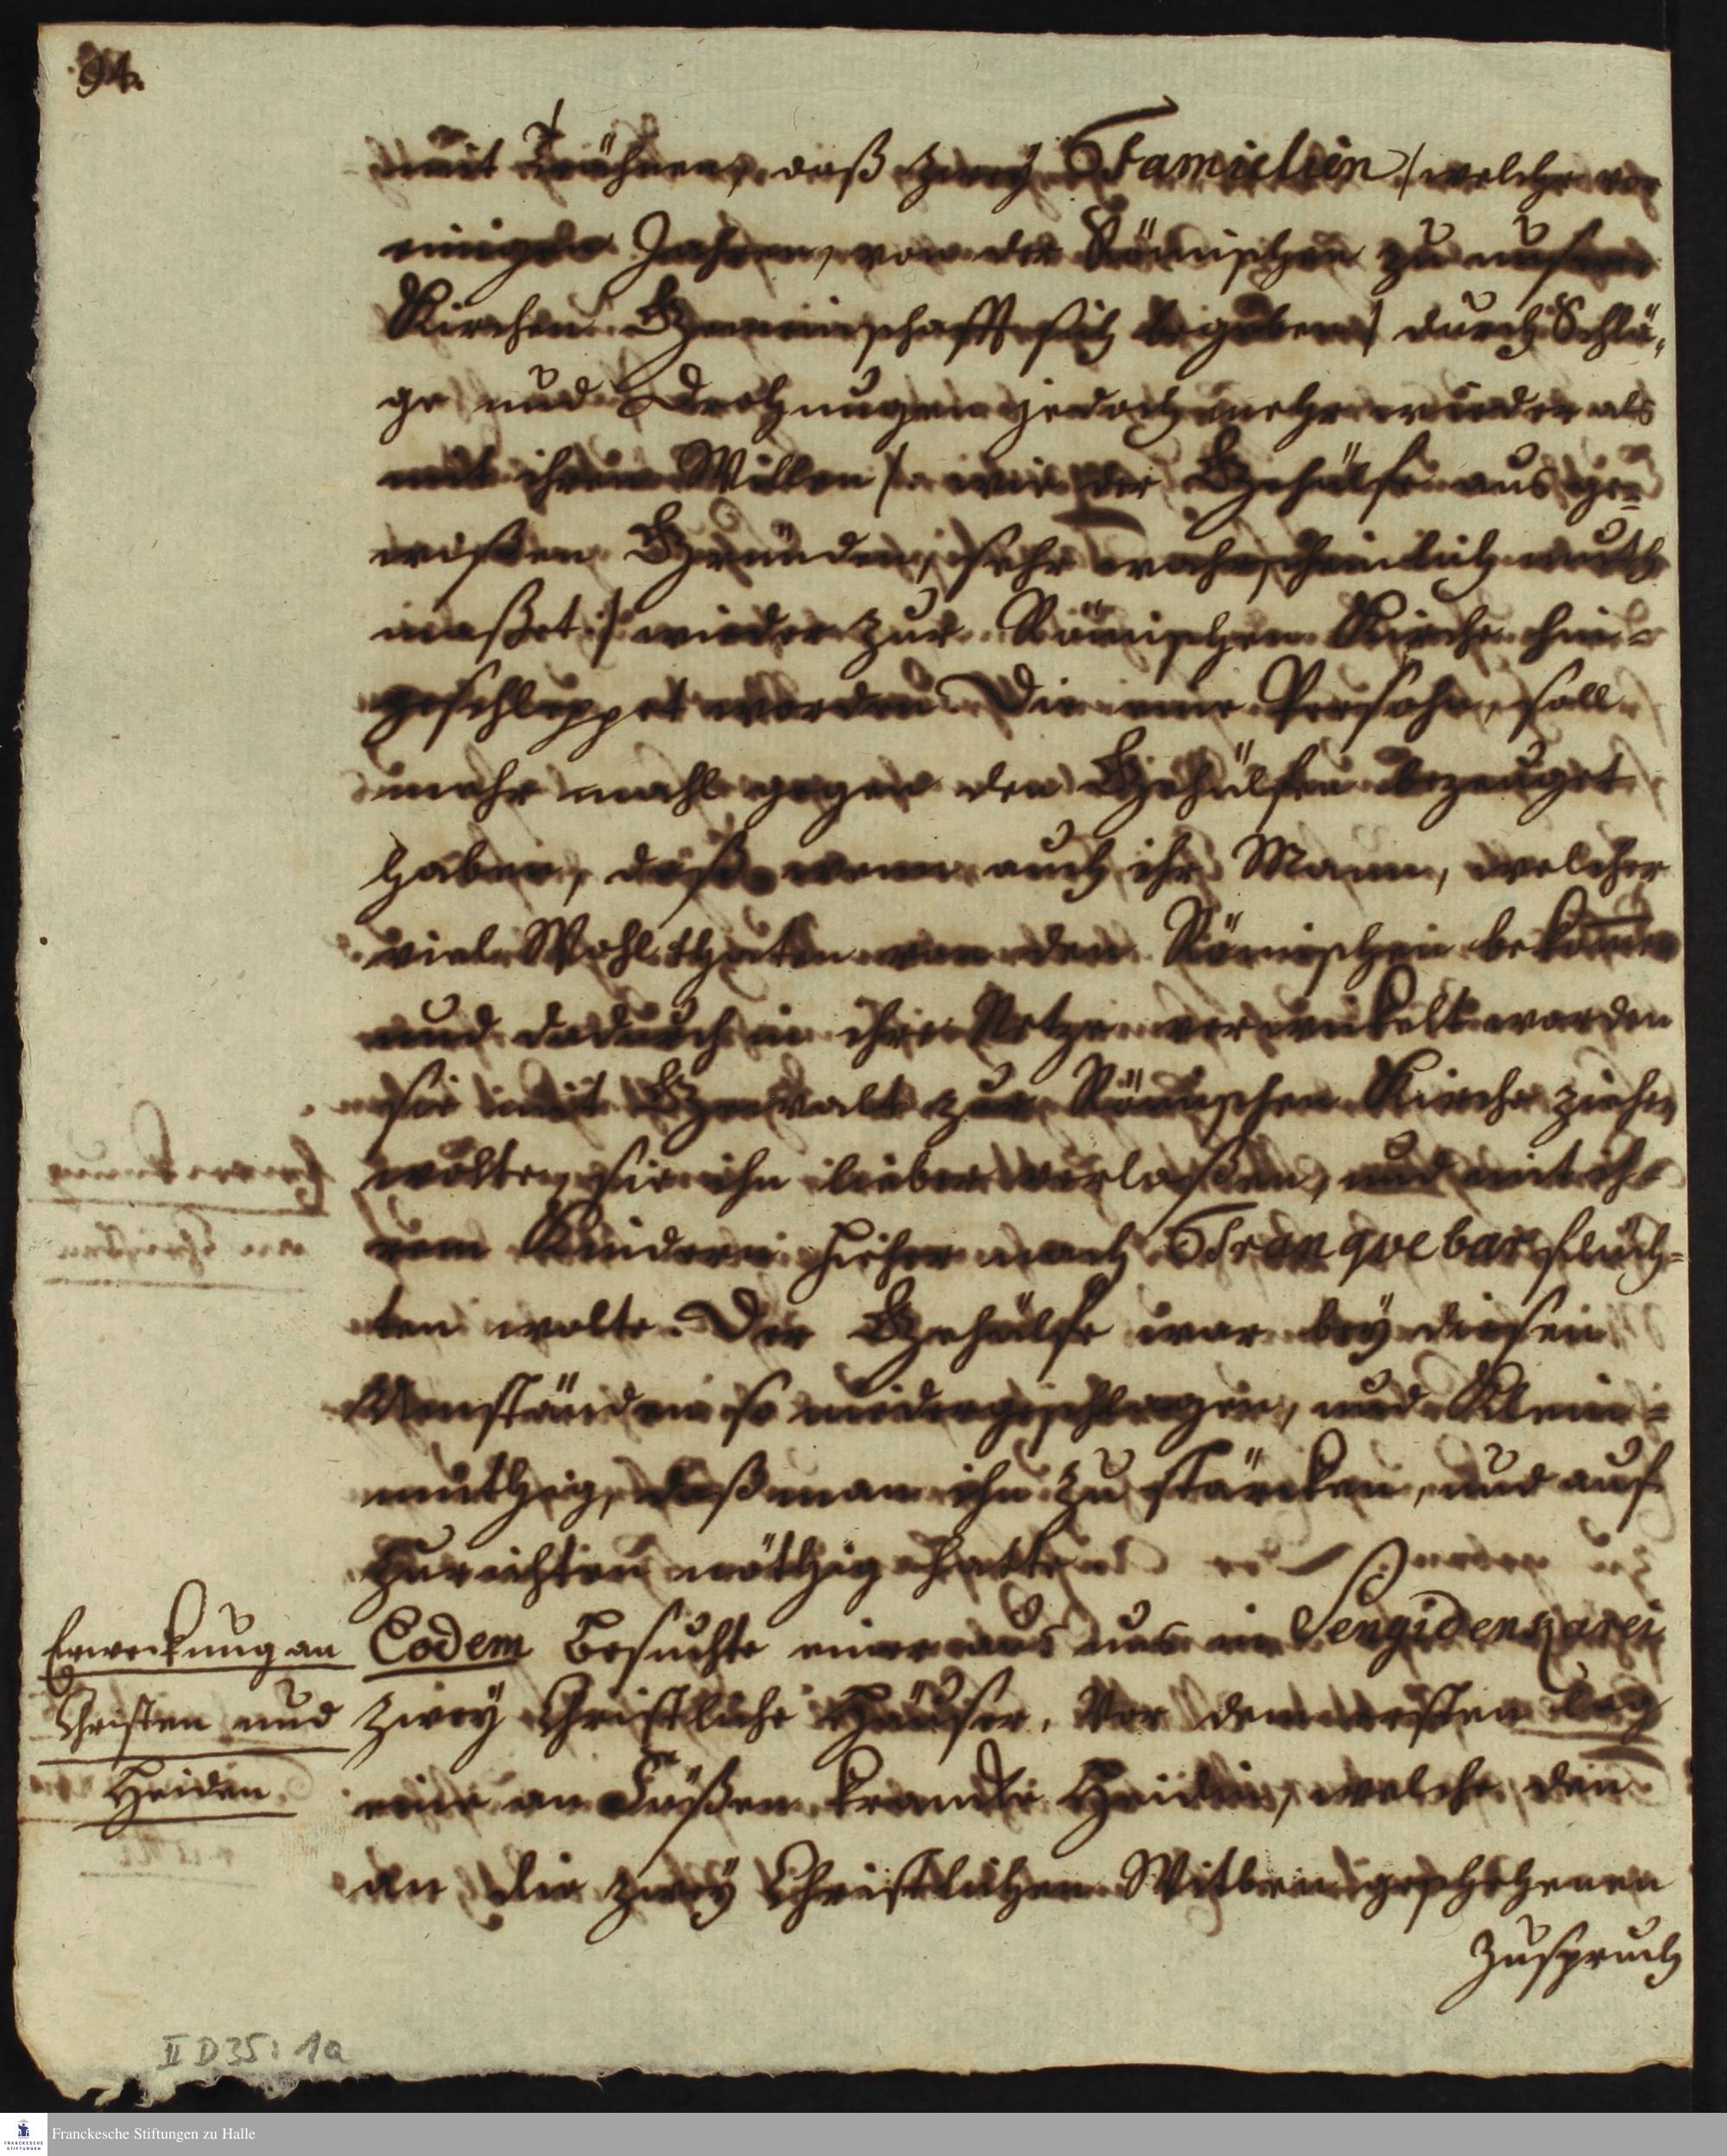 94.
mit Trähnen, daß zwey Familien /: welche vor
einigen Jahren, von der Römischen zu unserer
Kirchen Gemeinschafft sich begeben :/ durch Schlä-
ge und Drohungen jedoch mehr wieder als
mit ihrem Willen /: wie der Gehülfe aus ge-
wißen Gründen, sehr wahrscheinlich muth
maßet :/ wieder zur Römischen Kirche hin-
geschleppet worden. Die eine Persohn, soll
mehr mahl gegen den Gehülfen bezeuget
haben, daß wenn auch ihr Mann, welcher
viele Wohlthaten von den Römischen bekommen
und dadurch in ihre Netze verwickelt worden
sie mit Gewalt zur Römischen Kirche ziehen
wolte, sie ihn lieber verlaßen, und mit ih-
ren Kindern hieher nach Tranqvebar flüch-
ten wolte. Der Gehülfe war bey diesen
Umständen so niedergeschlagen, und Klein-
muthig, daß man ihn zu stärcken, und auf
zurichten nöthig hatte.
Erweckung an
Christen und
Heiden.
Eodem besuchte einer aus uns in Sengidenparei
zwey Christliche Häuser. Vor dem ersten lag
eine an Füßen krancke Heidin, welche den
an die zwey Christlichen Witben geschehenen
Zuspruch
II D35: 1a
Franckesche Stiftungen zu Halle
FRANCKESCHE
STIFTUNGEN